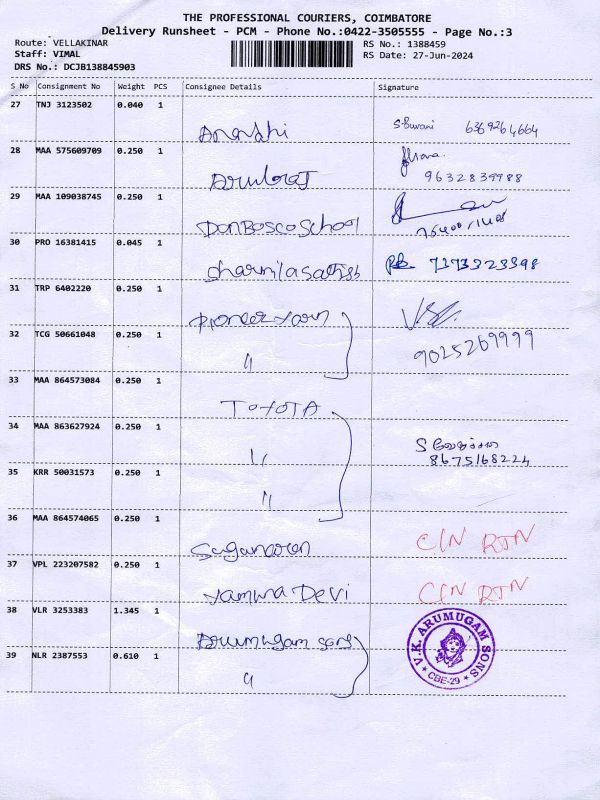 THE PROFESSIONAL COURIERS, COIMBATORE
Delivery Runsheet - PCM - Phone No.:0422-3505555 - Page No.:3
Route: VELLAKINAR
RS No.: 1388459
Staff: VIMAL
RS Date: 27-Jun-2024
DRS No.: DCJB138845903
S No Consignment No Weight PCS Consignee Details Signature
27 TNJ 3123502 0.040 1
Ananthi S.Buvani 6369264664
28 MAA 575609709 0.250 1
Arulraj 9632839988
29 MAA 109038745 0.250 1
Don Bosco School
30 PRO 16381415 0.045 1
Charmila Sathish 7373323398
31 TRP 6402220 0.250 1
Pioneer yarn
32 TCG 50661048 0.250 1
" 9025269999
33 MAA 864573084 0.250 1
TOYOTA
34 MAA 863627924 0.250 1
" 8675168224
35 KRR 50031573 0.250 1
"
36 MAA 864574065 0.250 1
CIN RTN
37 VPL 223207582 0.250 1
Yamuna Devi CIN RTN
38 VLR 3253383 1.345 1
Arumugam sons
39 NLR 2387553 0.610 1
"
V.K. ARUMUGAM SONS
* CBE-29 *